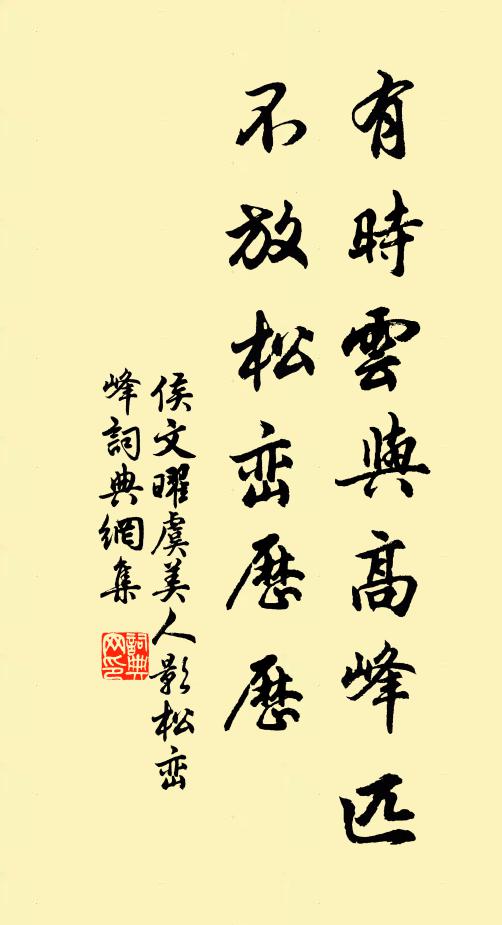 有時雲與高峰匹
不放松峦歷歷
侯文曜虞美人影松峦
峰詞典網集
詞典網印